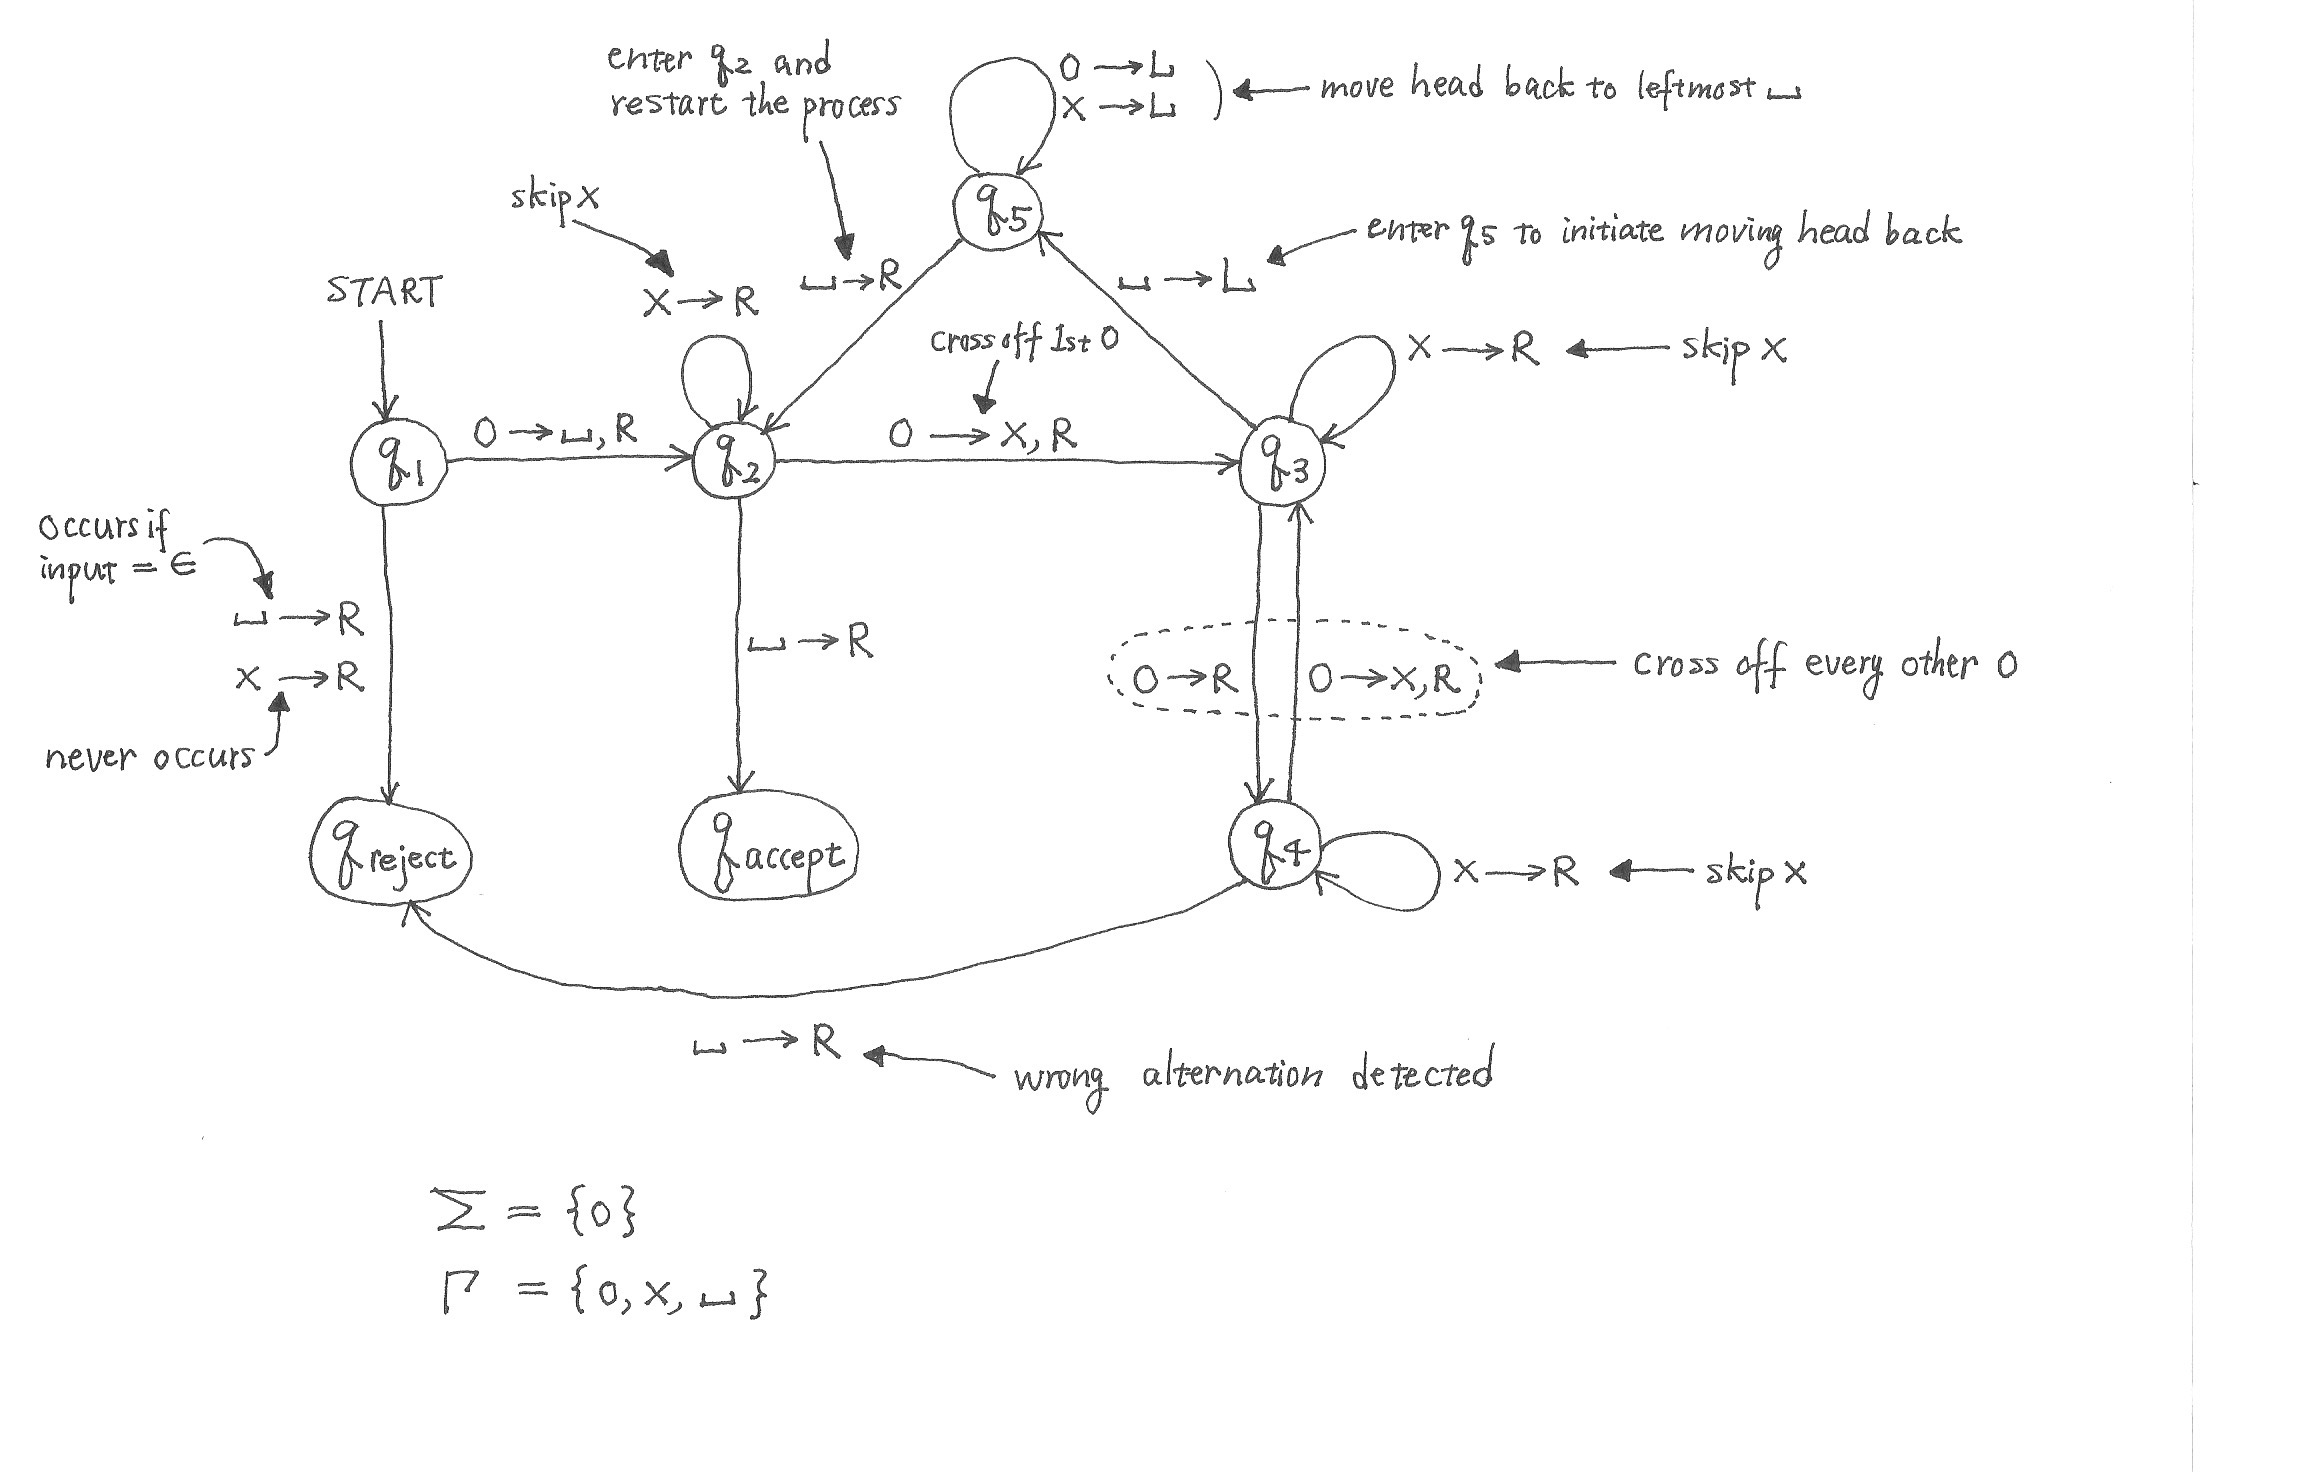 enter q2 and
restart the process
0 → L
x → L
move head back to leftmost ⊔
skip x
q5
enter q5 to initiate moving head back
START
x → R
⊔ → R
⊔ → L
cross off 1st 0
x → R
skip x
0 → ⊔, R
0 → x, R
q1
q2
q3
occurs if
input = ∈
⊔ → R
x → R
never occurs
⊔ → R
0 → R
0 → x, R
cross off every other 0
q reject
q accept
q4
x → R
skip x
⊔ → R
wrong alternation detected
Σ = {0}
Γ = {0, x, ⊔}